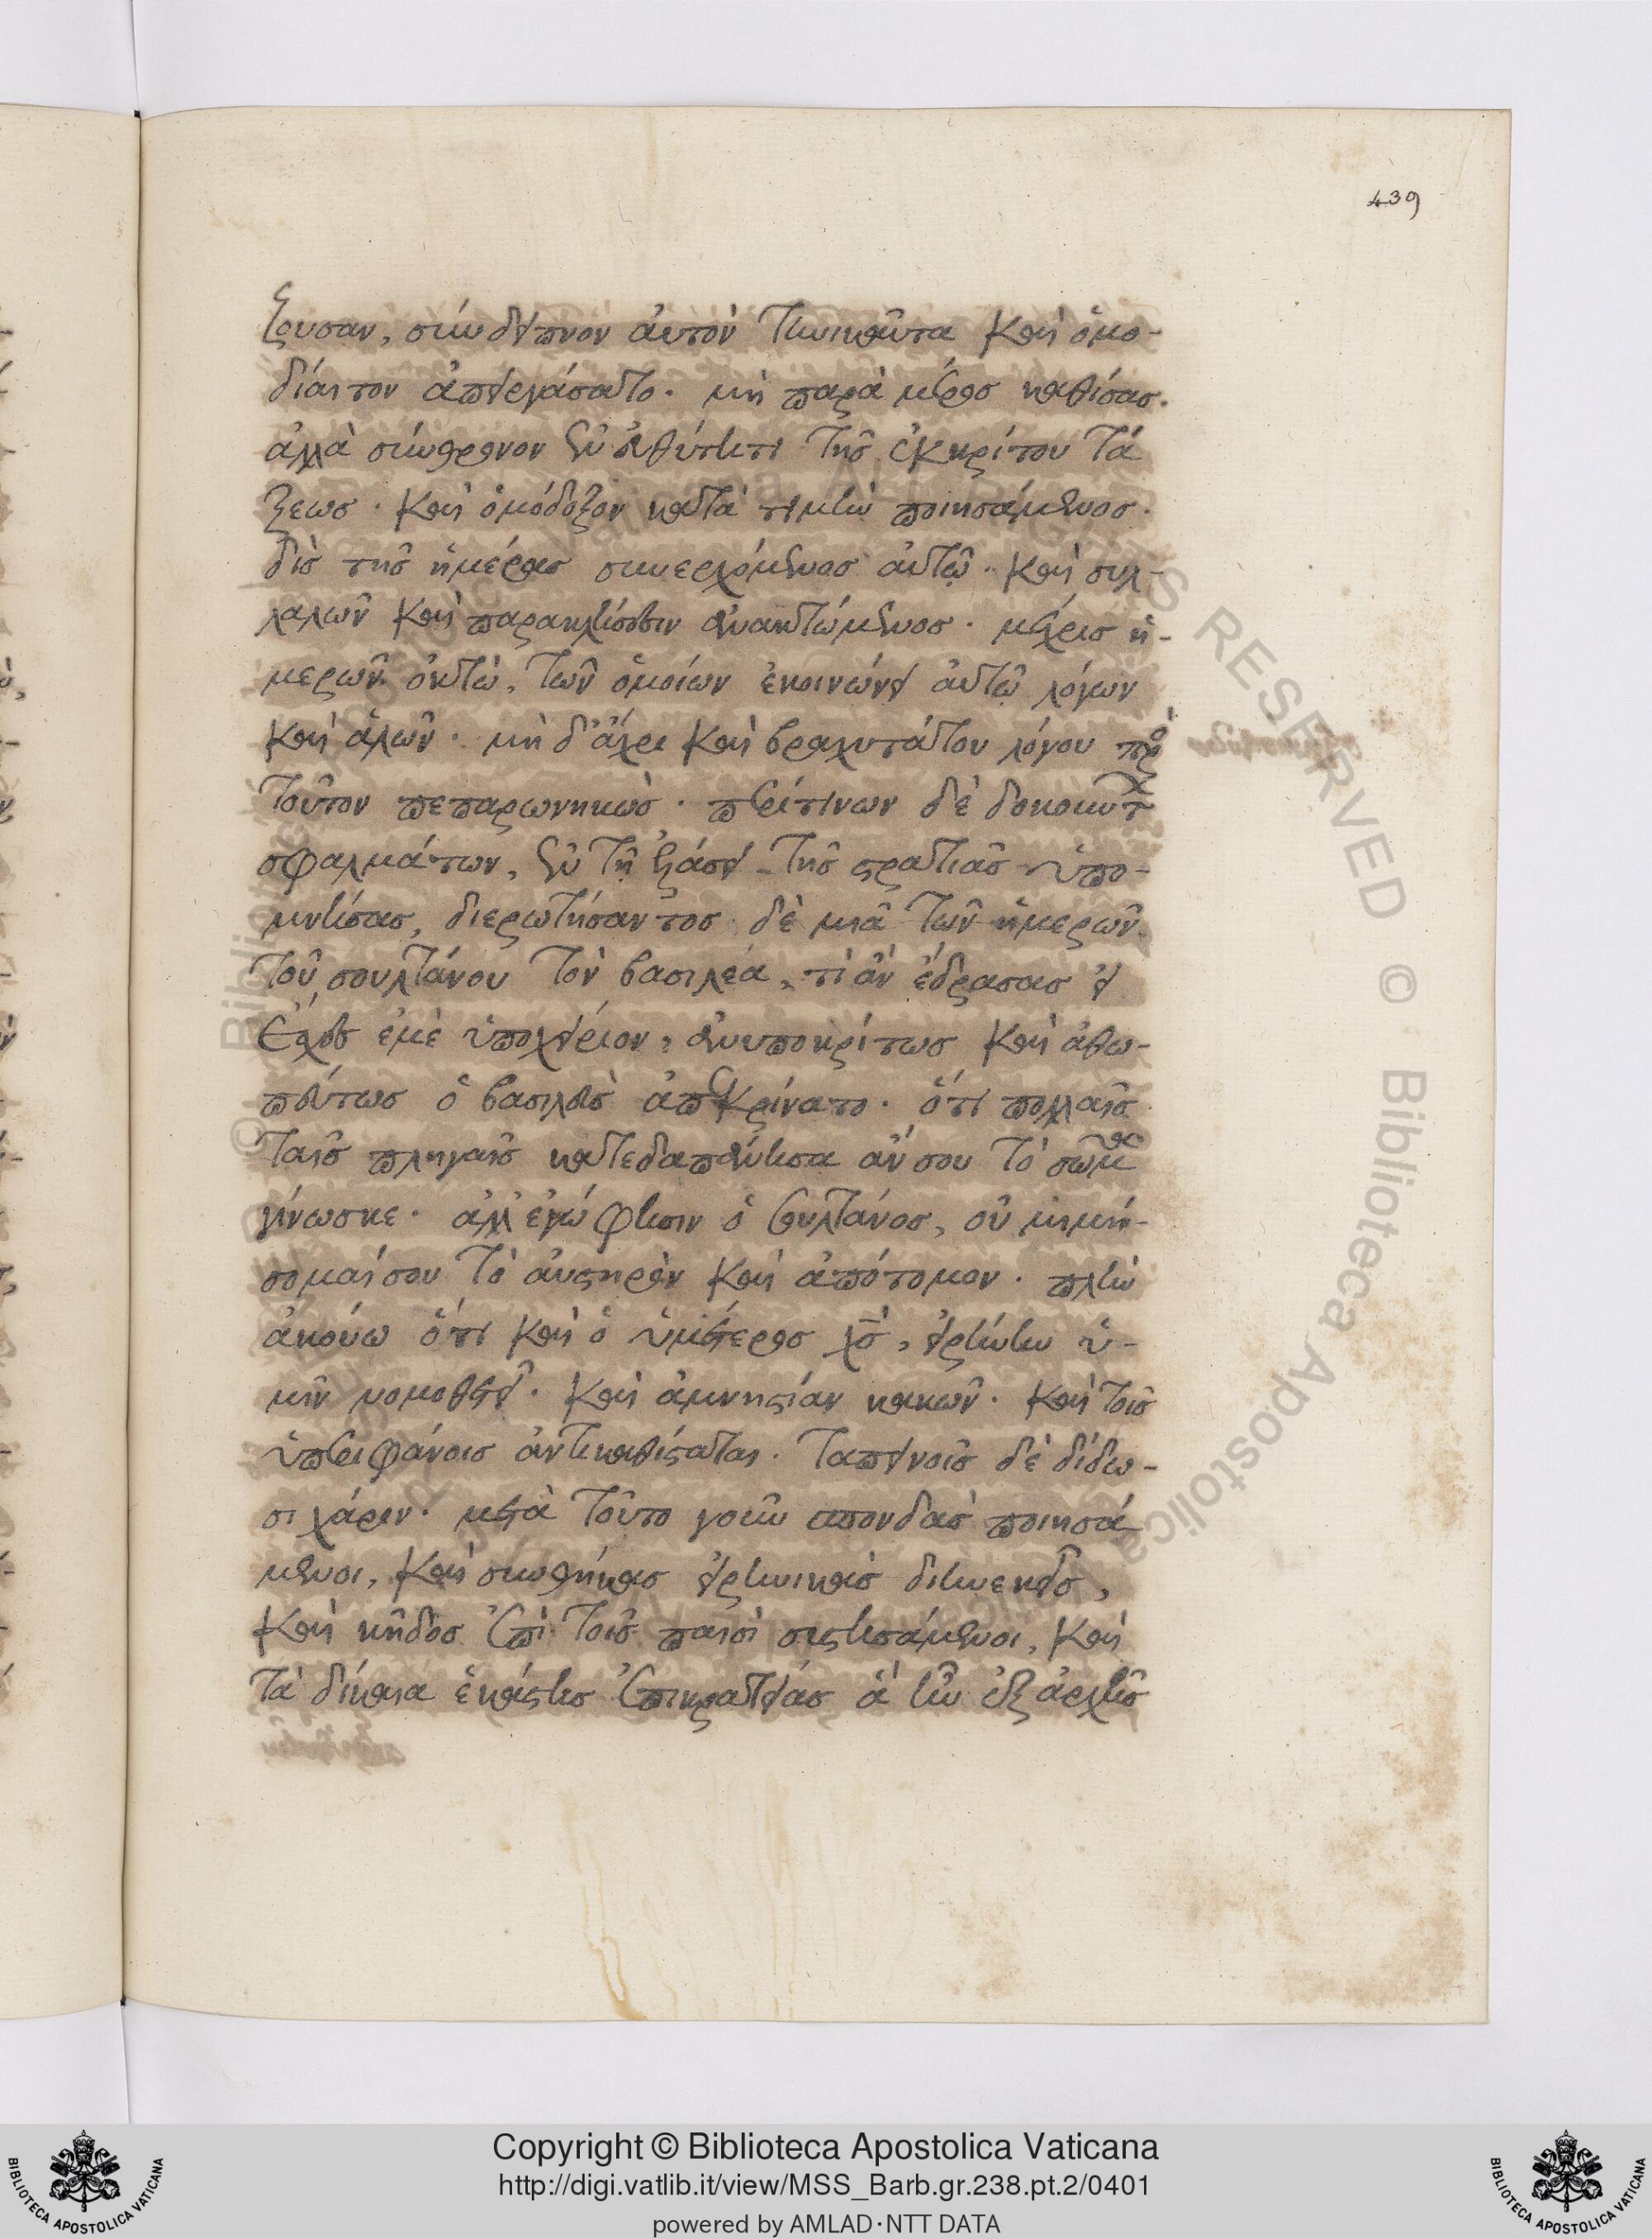 439
ξουσαν, σύνδειπνον αὐτὸν τηνικαῦτα καὶ ὁμο-
δίαιτον ἀπειργάσατο. μὴ παρὰ μέρος καθίσας.
ἀλλὰ σύνθρονον ἐν εὐθύτητι τῆς ἐκκρίτου τά
ξεως. καὶ ὁμόδοξον κατὰ τιμὴν ποιησάμενος.
δὶς τῆς ἡμέρας συνερχόμενος αὐτῷ. καὶ συλ-
λαλῶν καὶ παρακλήσεσιν ἀνακτώμενος. μέχρις ἡ-
μερῶν ὀκτὼ, τῶν ὁμοίων ἐκοινώνει αὐτῷ λόγων
καὶ ἁλῶν. μὴ δ' ἄχρι καὶ βραχυτάτου λόγου πρὸς
τοῦτον πεπαρωνηκὼς. περί τινων δὲ δοκούντων
σφαλμάτων, ἐν τῇ ἐλάσει τῆς στρατιᾶς ὑπο-
μνήσας, διερωτήσαντος δὲ μιᾷ τῶν ἡμερῶν
τοῦ σουλτάνου τὸν βασιλέα, τί ἂν ἔδρασας εἰ
ἔσχες ἐμὲ ὑποχείριον, ἀνυποκρίτως καὶ ἀθω-
πεύτως ὁ βασιλεὺς ἀπεκρίνατο. ὅτι πολλαῖς
ταῖς πληγαῖς κατεδαπάνησα ἄν σου τὸ σῶμα
γίνωσκε. ἀλλ' ἐγώ φησιν ὁ σουλτάνος, οὐ μιμή-
σομαί σου τὸ αὐστηρὸν καὶ ἀπότομον. πλὴν
ἀκούω ὅτι καὶ ὁ ὑμέτερος χς, εἰρήνην ὑ-
μῖν νομοθετεῖ. καὶ ἀμνηστίαν κακῶν. καὶ τοῖς
ὑπεριφάνοις ἀντικαθίσταται. ταπεινοῖς δὲ δίδω-
σι χάριν. μετὰ τοῦτο γοῦν σπονδὰς ποιησά
μενοι, καὶ συνθήκας εἰρηνικὰς διηνεκεῖς,
καὶ κῆδος ἐπὶ τοῖς παισὶ συστησάμενοι, καὶ
τὰ δίκαια ἑκάστης ἐπικρατείας ἃ ἦν ἐξ ἀρχῆς
Copyright © Biblioteca Apostolica Vaticana
http://digi.vatlib.it/view/MSS_Barb.gr.238.pt.2/0401
powered by AMLAD·NTT DATA